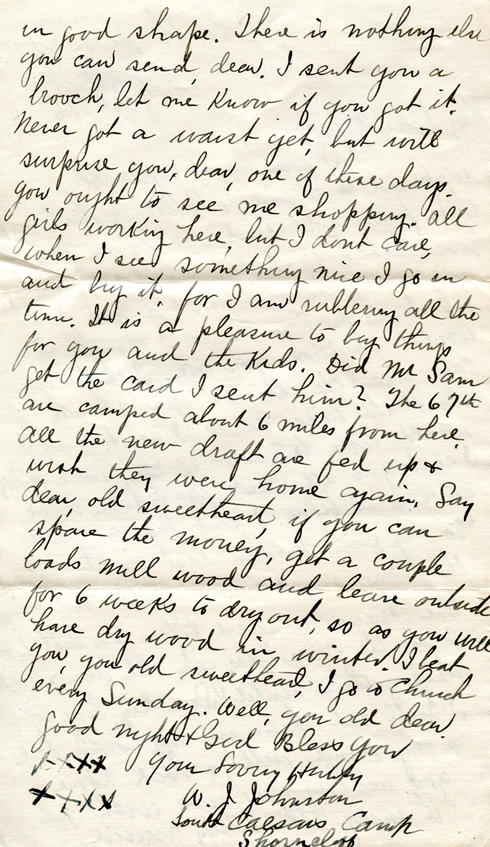 in good shape. There is nothing else
you can send, dear. I sent you a
brooch, let me know if you got it.
Never got a waist yet, but will
surprise you, dear, one of these days.
you ought to see me shopping. all
girls working here, but I dont care,
when I see something nice I go in
and buy it, for I am rubbering all the
time. It is a pleasure to buy things
for you and the Kids. Did Mr Sam
get the card I sent him? The 67th
are camped about 6 miles from here.
all the new draft are fed up &
wish they were home again. Say
dear, old sweetheart, if you can
spare the money, get a couple
loads mill wood and leave outside
for 6 weeks to dry out, so as you will
have dry wood in winter. I beat
you, you old sweetheart, I go to Church
every Sunday. Well, you old dear
good night & God Bless You
x x x x Your Loving Hubby
x x x x W. J. Johnston
South Caesars Camp
Shorncliffe